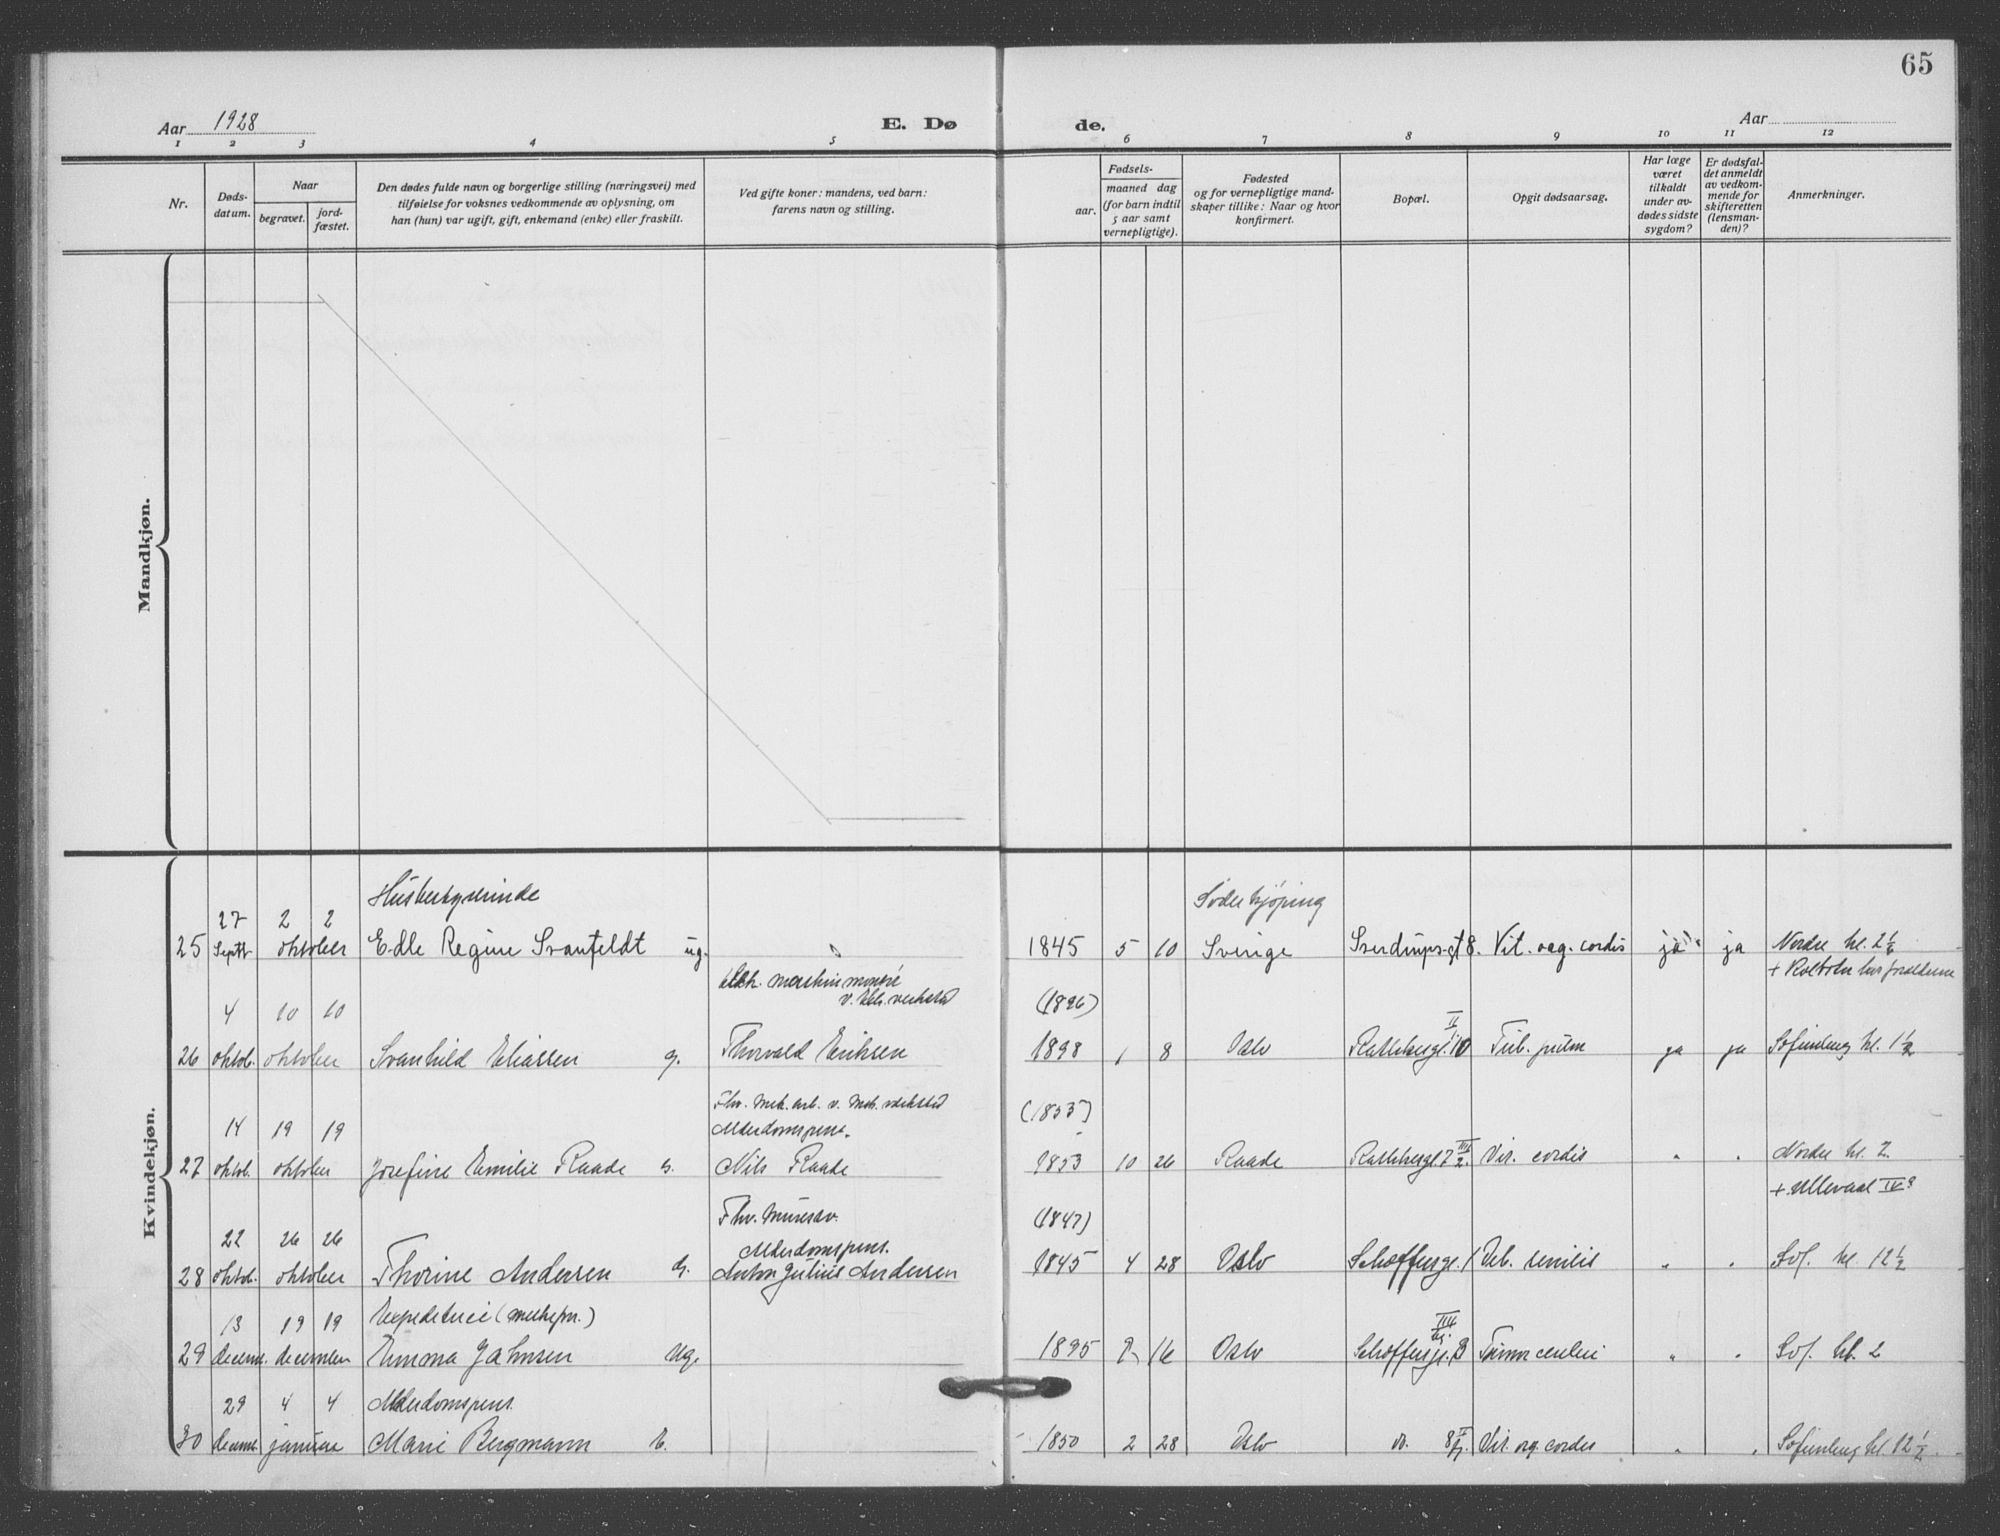 65
Aar 1928
E. Dø
de.
Aar
1 2 3 4 5 6 7 8 9 10 11 12
Nr.
Døds-
datum.
Naar
begravet.
jord-
fæstet.
Den dødes fulde navn og borgerlige stilling (næringsvei) med
tilføielse for voksnes vedkommende av oplysning, om
han (hun) var ugift, gift, enkemand (enke) eller fraskilt.
Ved gifte koner: mandens, ved barn:
farens navn og stilling.
aar.
Fødsels-
maaned dag
(for barn indtil
5 aar samt
vernepligtige).
Fødested
og for vernepligtige mand-
skaper tillike: Naar og hvor
konfirmert.
Bopæl.
Opgit dødsaarsag.
Har læge
været
tilkaldt
under av-
dødes sidste
sygdom?
Er dødsfal-
det anmeldt
av vedkom-
mende for
skifteretten
(lensman-
den)?
Anmerkninger.
Mandkjøn.
Kvindekjøn.
Husbestyrerinde
Søderkjøping
27 2 2
25 Septb. oktober Edle Regine Svanfeldt ug. 1845 5 10 Sverige Sverdrups-gt 8. Vit. org. cordis ja ja Nordre kl. 2½
v. Mek. verksted
4 10 10 (1896)
II
26 oktob. oktober Svanhild Eliassen g. Thorvald Eriksen 1898 1 8 Oslo Rathkesgt. 10 Tub. pulm ja ja Sofienberg kl. 1½
Fhv. Mek. arb. v. Mek. verksted (1853)
14 19 19 Alderdomspens.
27 oktob. oktober Josefine Emilie Raade e. Nils Raade 1853 10 26 Raade Rathkesgt. 7 III/2. Vit. cordis " " Nordre kl. 2
+ Ullevaal IV?
Fhv. Murerarb. (1847)
22 26 26 Alderdomspens.
28 oktob. oktober Thorine Andersen G. Anton Julius Andersen 1845 4 28 Oslo Schøffersgt. 1 Deb. senilis " " Sof. kl. 12½
13 19 19 Expeditrice
IIII
29 decemb. december Emma Jahnsen Ug. 1895 2 16 Oslo Schøffersgt. Tumor cerebri " " Sof. kl. 2
29 4 4 Alderdomspens.
30 decemb. januar Marie Bergmann E. 1850 2 28 Oslo do. 8 Vit. org. cordis " " Sofienberg kl. 12½